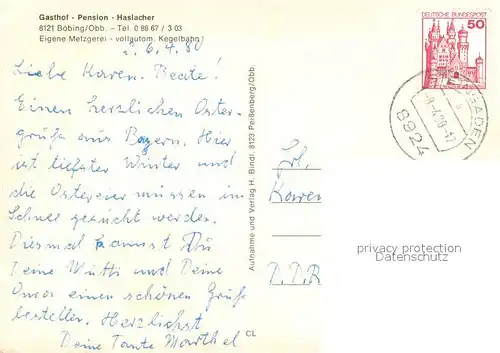 Gasthof - Pension - Haslacher
8121 Böbing/Obb. – Tel. 0 88 67 / 3 03
Eigene Metzgerei - vollautom. Kegelbahn
6.4.80
Liebe Karen. Beate!
Einen herzlichen Oster-
gruß aus Bayern. Hier
ist tiefster Winter und
die Ostereier müssen im
Schnee gesucht werden.
Diesmal kannst Du
Deine Mutti und Deine
Omas einen schönen Gruß
bestellen. Herzlichst
Deine Tante Marthel
CL
Aufnahme und Verlag H. Bindl, 8123 Peißenberg/Obb.
DEUTSCHE BUNDESPOST
50
8924
GADEN
Frl.
Karen
D.D.R
privacy protection
Datenschutz